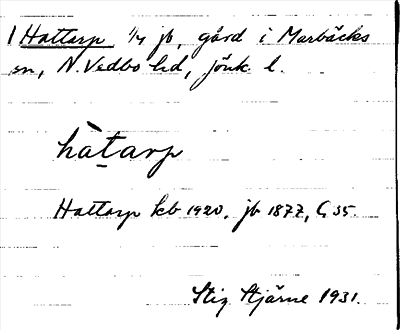 1 Hattarp 1/4 jb, gård i Marbäcks
sn, N. Vedbo hd, Jönk l.
hàtarp
Hattarp kb 1920, jb 1877, G 35.
Stig Stjärne 1931.